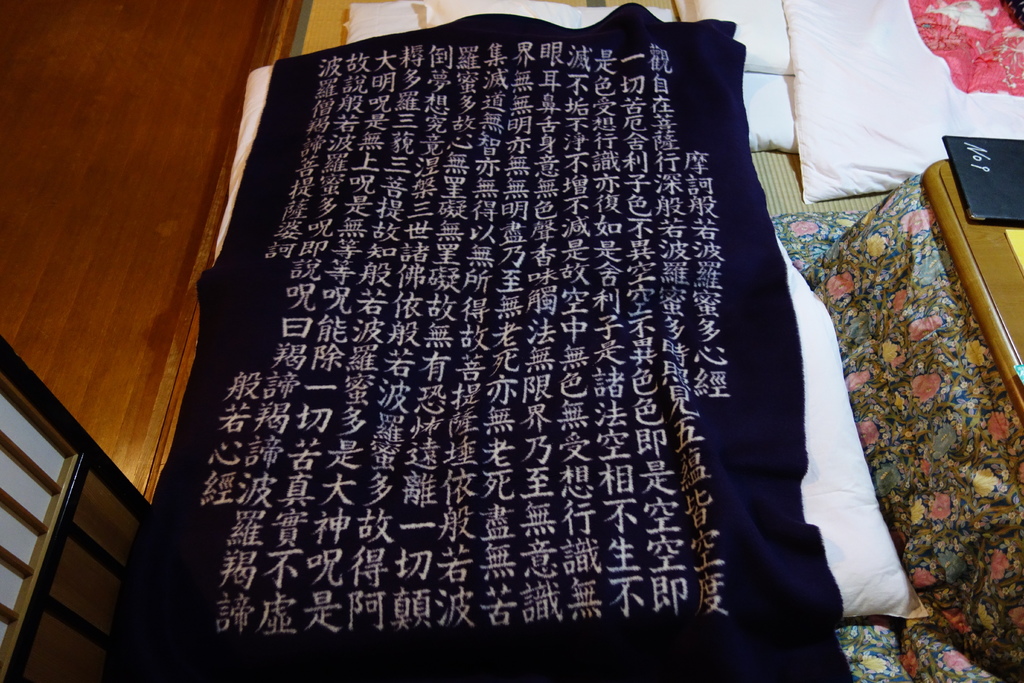 摩訶般若波羅蜜多心經
觀自在菩薩行深般若波羅蜜多時照見五蘊皆空度
一切苦厄舍利子色不異空空不異色色即是空空即
是色受想行識亦復如是舍利子是諸法空相不生不
滅不垢不淨不增不減是故空中無色無受想行識無
眼耳鼻舌身意無色聲香味觸法無限界乃至無意識
界無無明亦無無明盡乃至無老死亦無老死盡無苦
集滅道無智亦無得以無所得故菩提薩埵依般若波
羅蜜多故心無罣礙無罣礙故無有恐怖遠離一切顛
倒夢想究竟涅槃三世諸佛依般若波羅蜜多故得阿
耨多羅三藐三菩提故知般若波羅蜜多是大神呪是
大明呪是無上呪是無等等呪能除一切苦真實不虛
故說般若波羅蜜多呪即說呪曰羯諦羯諦波羅羯諦
波羅僧羯諦菩提薩婆訶
般若心經
No9